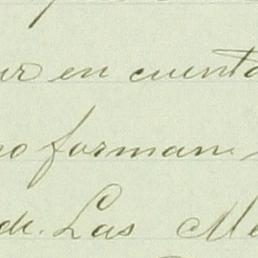 en cuenta
no forman
de. Las Me